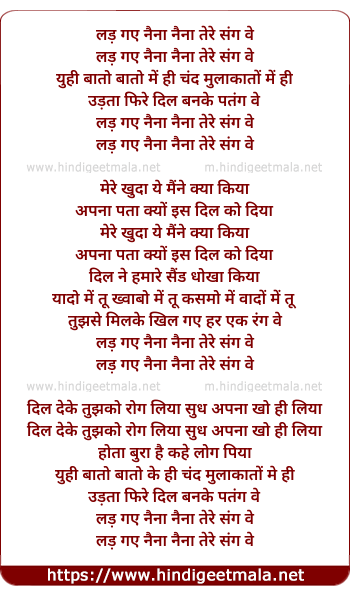 लड़ गए नैना नैना तेरे संग वे
लड़ गए नैना नैना तेरे संग वे
युही बातो बातो में ही चंद मुलाकातों में ही
उड़ता फिरे दिल बनके पतंग वे
लड़ गए नैना नैना तेरे संग वे
लड़ गए नैना नैना तेरे संग वे
www.hindigeetmala.net m.hindigeetmala.net
मेरे खुदा ये मैंने क्या किया
अपना पता क्यों इस दिल को दिया
मेरे खुदा ये मैंने क्या किया
अपना पता क्यों इस दिल को दिया
दिल ने हमारे सैंड धोखा किया
यादो में तू ख्वाबो में तू कसमो में वादों में तू
तुझसे मिलके खिल गए हर एक रंग वे
लड़ गए नैना नैना तेरे संग वे
लड़ गए नैना नैना तेरे संग वे
www.hindigeetmala.net m.hindigeetmala.net
दिल देके तुझको रोग लिया सुध अपना खो ही लिया
दिल देके तुझको रोग लिया सुध अपना खो ही लिया
होता बुरा है कहे लोग पिया
युही बातो बातो के ही चंद मुलाकातों मे ही
उड़ता फिरे दिल बनके पतंग वे
लड़ गए नैना नैना तेरे संग वे
लड़ गए नैना नैना तेरे संग वे
https://www.hindigeetmala.net